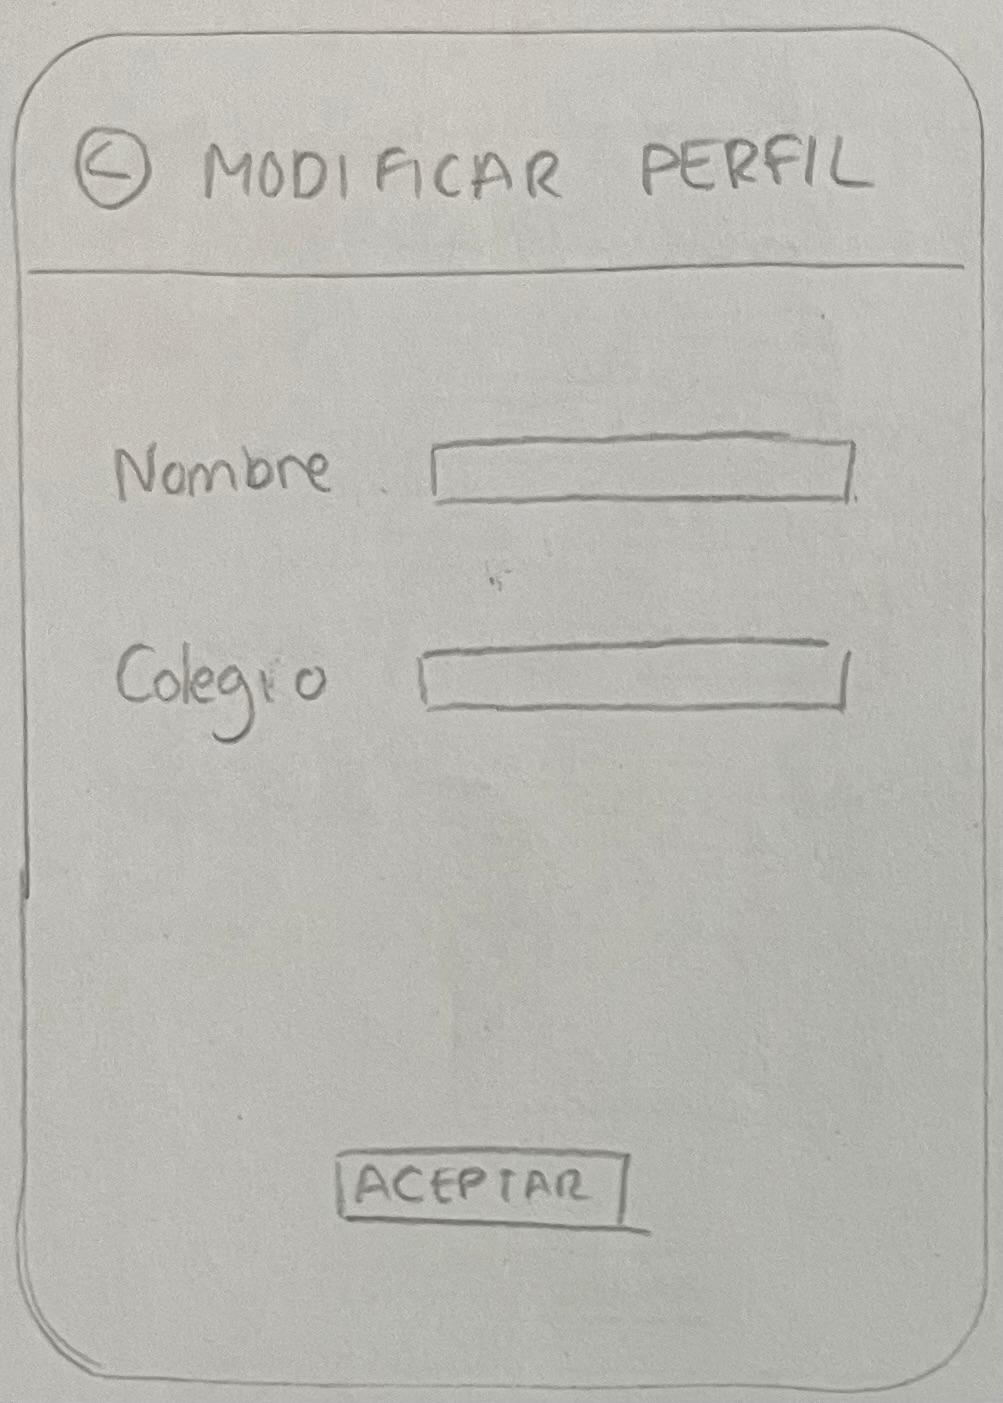 MODIFICAR PERFIL
Nombre
Colegio
ACEPTAR